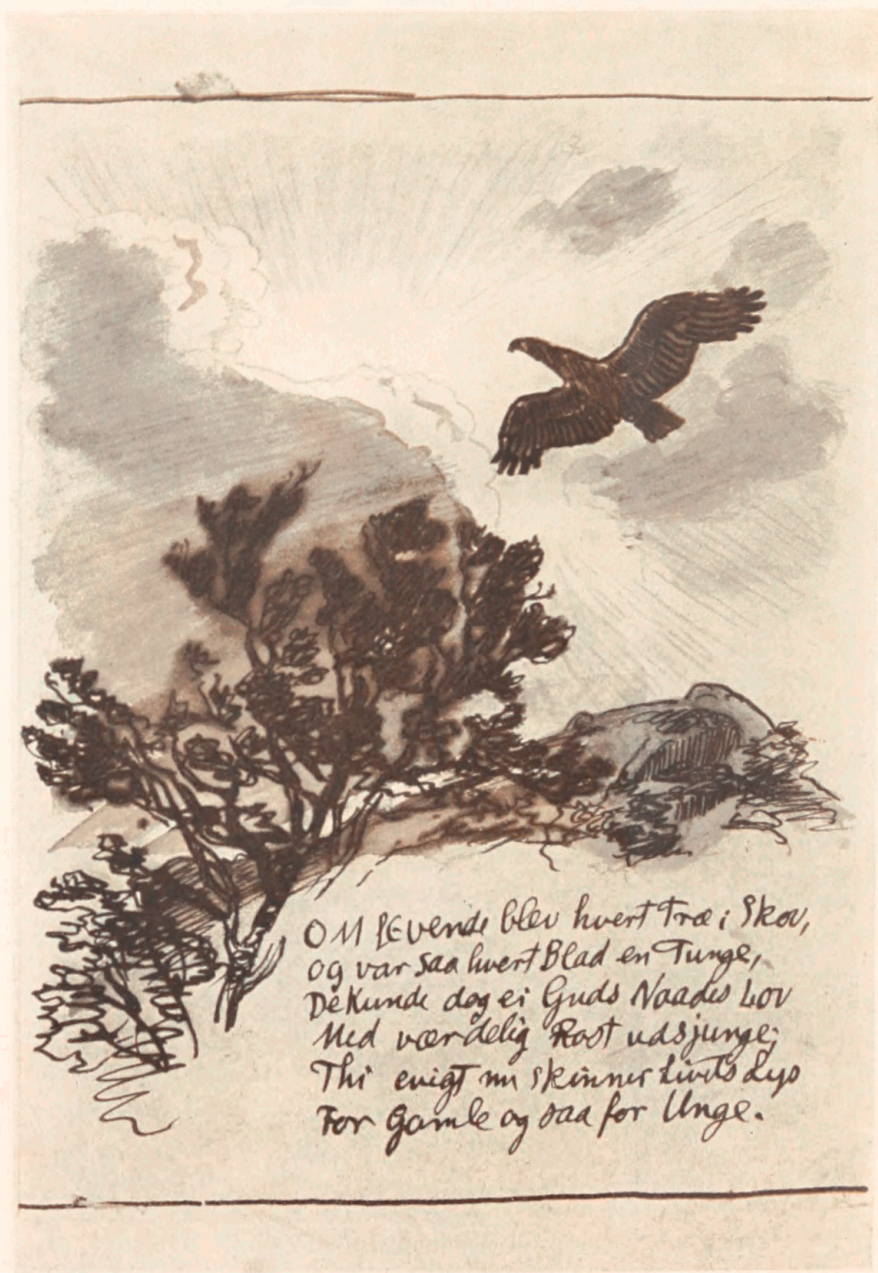 OM LEvende blev hvert Træ i Skov,
og var saa hvert Blad en Tunge,
De Kunde dog ei Guds Naades Lov
Med værdelig Røst udsjunge;
Thi evigt nu skinner Livets Lys
For Gamle og saa for Unge.